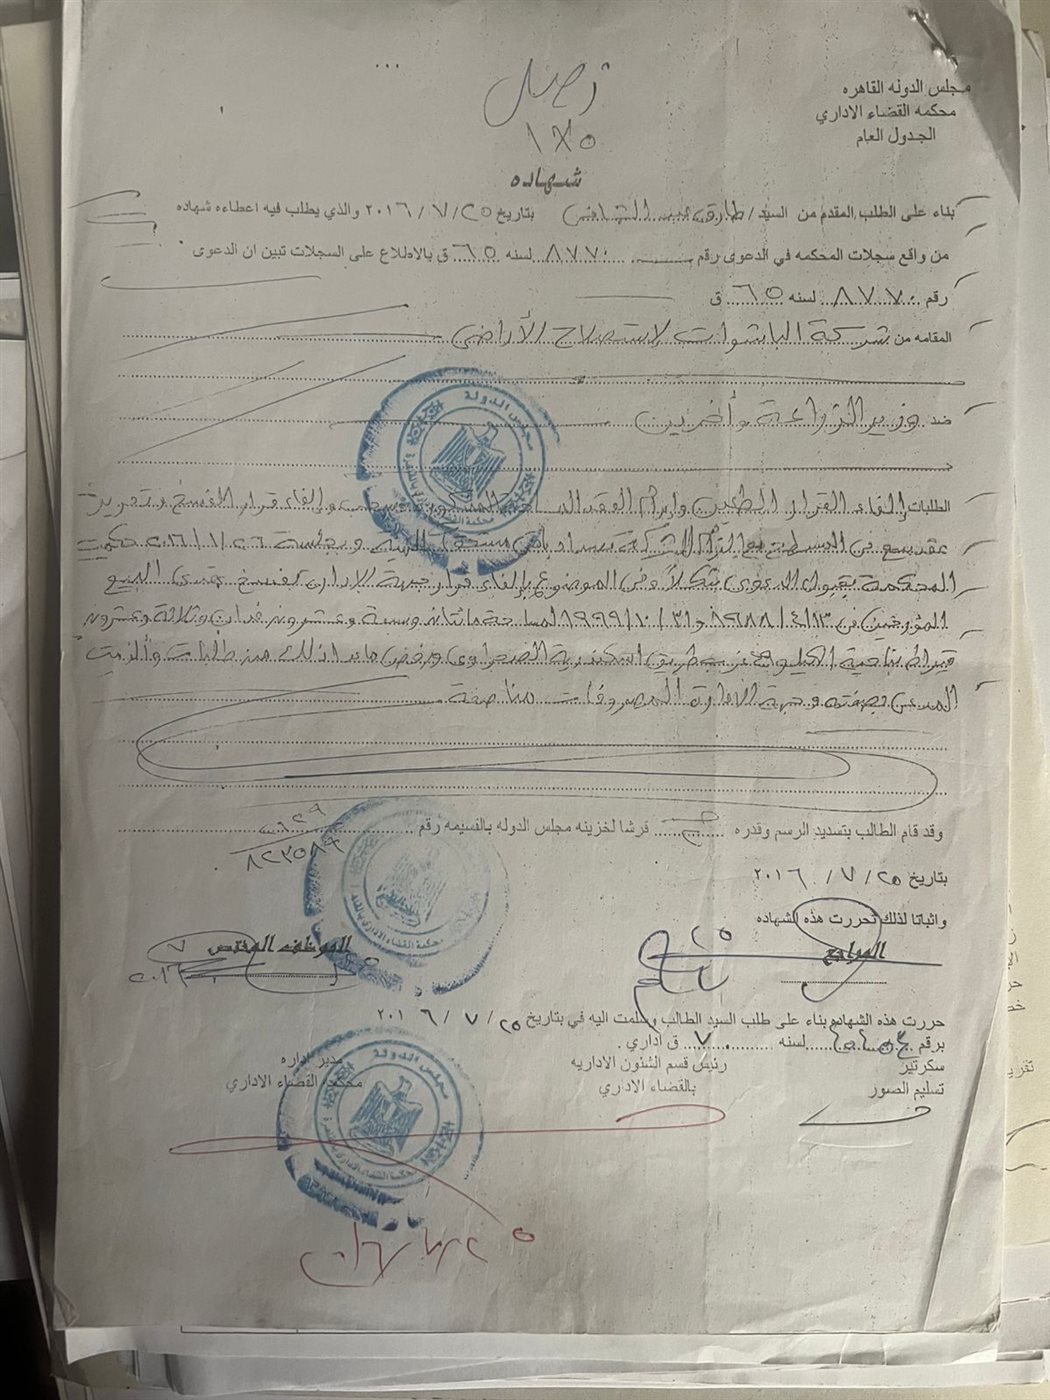 مجلس الدوله القاهره
محكمه القضاء الاداري
الجدول العام
١٨٥
شهاده
بناء على الطلب المقدم من السيد / طارق عبد الشافى بتاريخ ٢٥ / ٧ / ٢٠١٦ والذي يطلب فيه اعطاءه شهاده
من واقع سجلات المحكمه في الدعوى رقم ٨٧٧٠ لسنه ٦٥ ق بالاطلاع على السجلات تبين ان الدعوى
رقم ٨٧٧٠ لسنه ٦٥ ق
المقامه من شركة الباشوات لاستصلاح الأراضي
ضد وزير الزراعة وأخرين
الطلبات إلغاء القرار الطعين وابرام العقد والغاء قرار الفسخ وتحرير
عقد بيع مع التزام الشركة بسداد باقى وبجلسة ٢٦ / ١ / ٢٠١٦ حكمت
المحكمة بقبول الدعوى شكلاً وفى الموضوع بإلغاء قرار جهة الإدارة بفسخ عقدى البيع
المؤرخين فى ١٣ / ٤ / ١٩٨٨ و ٣١ / ١٠ / ١٩٩٩ لمساحة مائتان وسبعة وعشرون فدان وثلاثة وعشرون
قيراط بناحية الكيلو غرب طريق اسكندرية الصحراوى ورفض ماعدا ذلك من طلبات وألزمت
المدعى بصفته وجهة الادارة المصروفات مناصفة
وقد قام الطالب بتسديد الرسم وقدره قرشا لخزينه مجلس الدوله بالقسيمه رقم
بتاريخ ٢٥ / ٧ / ٢٠١٦
واثباتا لذلك تحررت هذه الشهاده
المراجع الموظف المختص
حررت هذه الشهاده بناء على طلب السيد الطالب وسلمت اليه في بتاريخ ٢٥ / ٧ / ٢٠١٦
برقم لسنه ٧٠ ق اداري .
سكرتير رئيس قسم الشئون الاداريه مدير اداره
تسليم الصور بالقضاء الاداري محكمه القضاء الاداري
مجلس الدولة